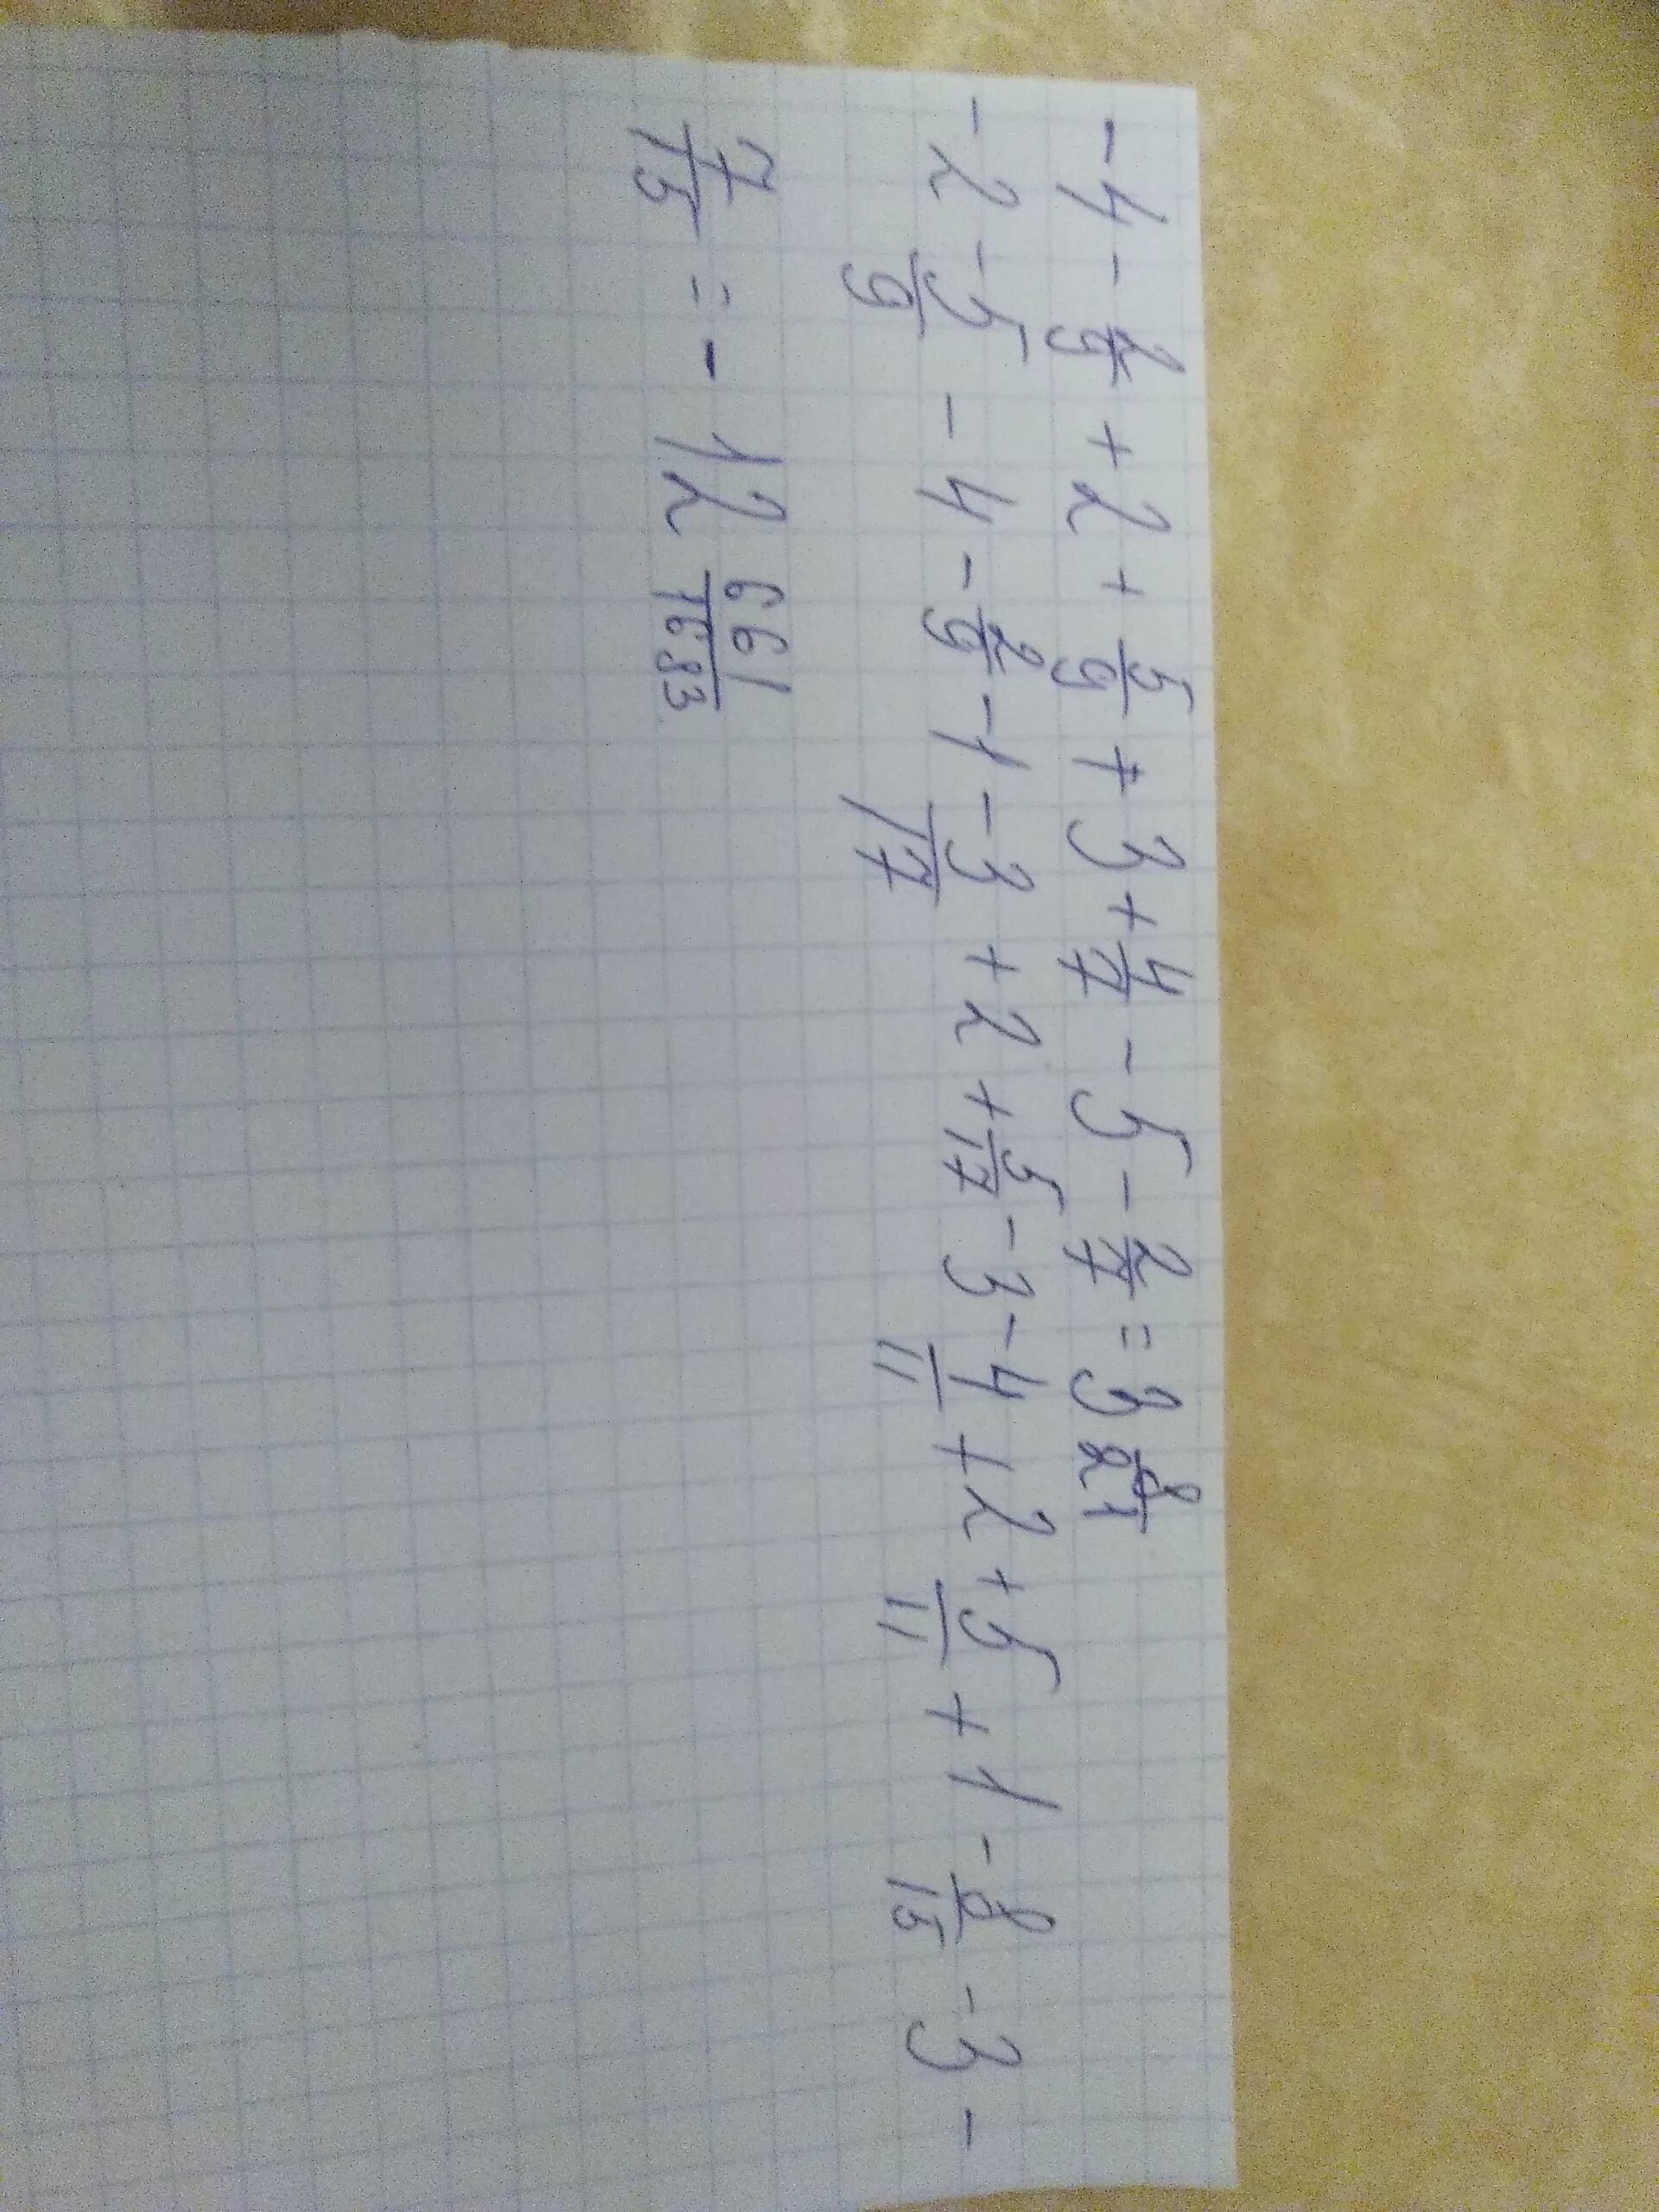 - 4 - 2/9 + 2 + 5/9 + 3 + 4/7 - 5 - 2/7 = 3 8/21
- 2 - 5/9 - 4 - 2/9 - 1 - 3/17 + 2 + 5/17 - 3 - 4/11 + 2 + 5/11 + 1 - 8/15 - 3 -
7/15 = - 12 661/1683